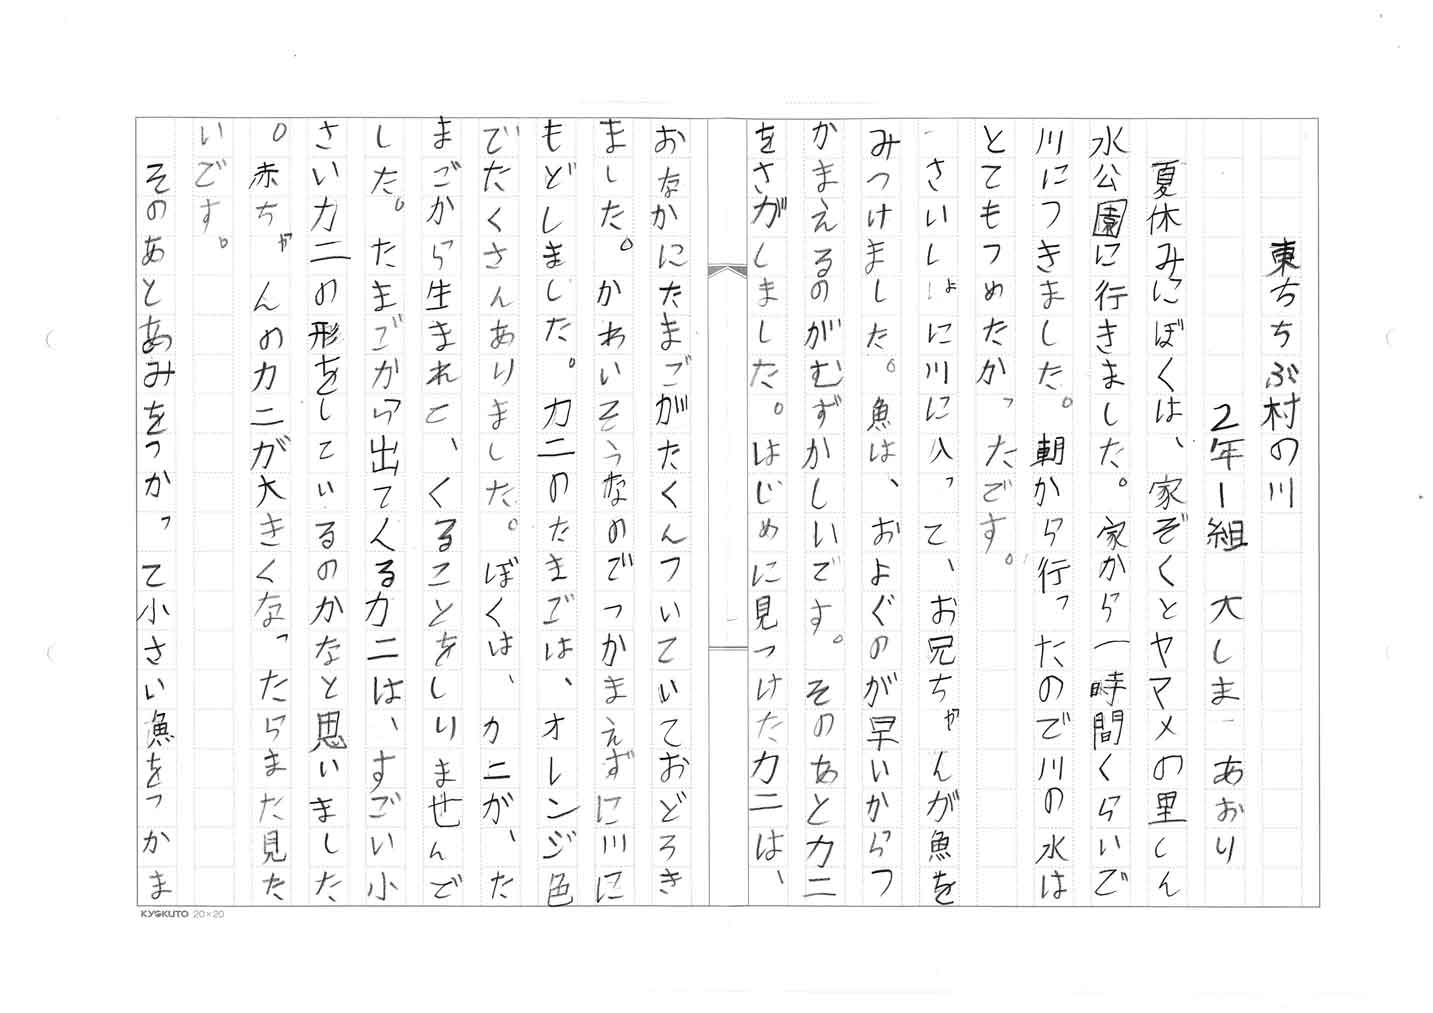 東ちちぶ村の川
2年1組 大しま あおり
夏休みにぼくは、家ぞくとヤマメの里しん
水公園に行きました。家から一時間くらいで
川につきました。朝から行ったので川の水は
とてもつめたかったです。
さいしょに川に入って、お兄ちゃんが魚を
みつけました。魚は、およぐのが早いからつ
かまえるのがむずかしいです。そのあとカニ
をさがしました。はじめに見つけたカニは、
おなかにたまごがたくんついていておどろき
ました。かわいそうなのでつかまえずに川に
もどしました。カニのたまごは、オレンジ色
でたくさんありました。ぼくは、カニが、た
まごから生まれて、くることをしりませんで
した。たまごから出てくるカニは、すごい小
さいカニの形をしているのかなと思いました
。赤ちゃんのカニが大きくなったらまた見た
いです。
そのあとあみをつかって小さい魚をつかま
KYOKUTO 20×20